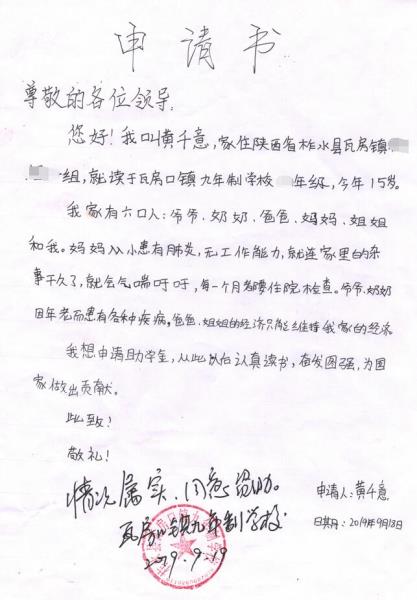 申请书
尊敬的各位领导:
您好!我叫黄千意,家住陕西省柞水县瓦房镇
组,就读于瓦房口镇九年制学校 年级,今年15岁。
我家有六口人:爷爷、奶奶、爸爸、妈妈、姐姐
和我。妈妈从小患有肺炎,无工作能力,就连家里的杂
事干久了,就会气喘吁吁,每一个月都要住院检查。爷爷、奶奶
因年老而患有各种疾病。爸爸、姐姐的经济只能维持我家的经济
我想申请助学金,从此以后认真读书,奋发图强,为国
家做出贡献。
此致!
敬礼!
情况属实、同意资助。
申请人:黄千意
瓦房口镇九年制学校
日期:2019年9月13日
2019.9.19